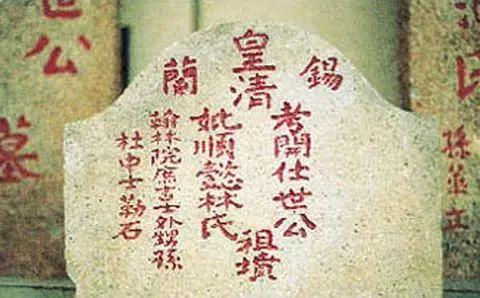 氏
孫並立
錫蘭
皇清
考開仕世公
妣順懿林氏
祖墳
翰林院庶吉士外甥孫
杜中士勒石
世公
墓